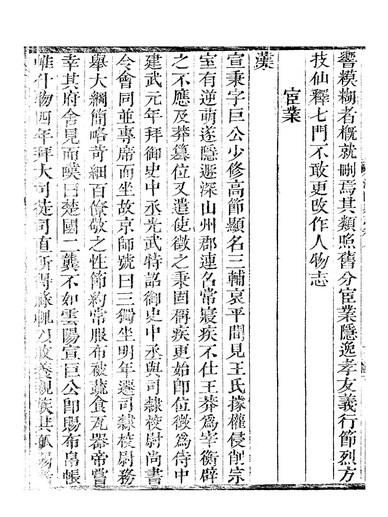 響模糊者概就刪焉其類照舊分宦業隱逸孝友義行節烈方
技仙釋七門不敢更改作人物志
宦業
漢
宣秉字巨公少修高節顯名三輔哀平間見王氏據權侵削宗
室有逆萌遂隱遯深山州郡連名常寢疾不仕王莽爲宰衡辟
之不應及莽篡位又遣使徵之秉固稱疾更始卽位徵爲侍中
建武元年拜御史中丞光武特詔御史中丞與司隷校尉尚書
令會同並專席而坐故京師號曰三獨坐明年遷司隷校尉務
舉大綱簡略苛細百僚敬之性節約常服布被蔬食瓦器帝嘗
幸其府舍見而嘆曰楚國二龔不如雲陽宣巨公卽賜布帛帳
帷什物四年拜大司徒司直所得祿俸以收養親族其孤